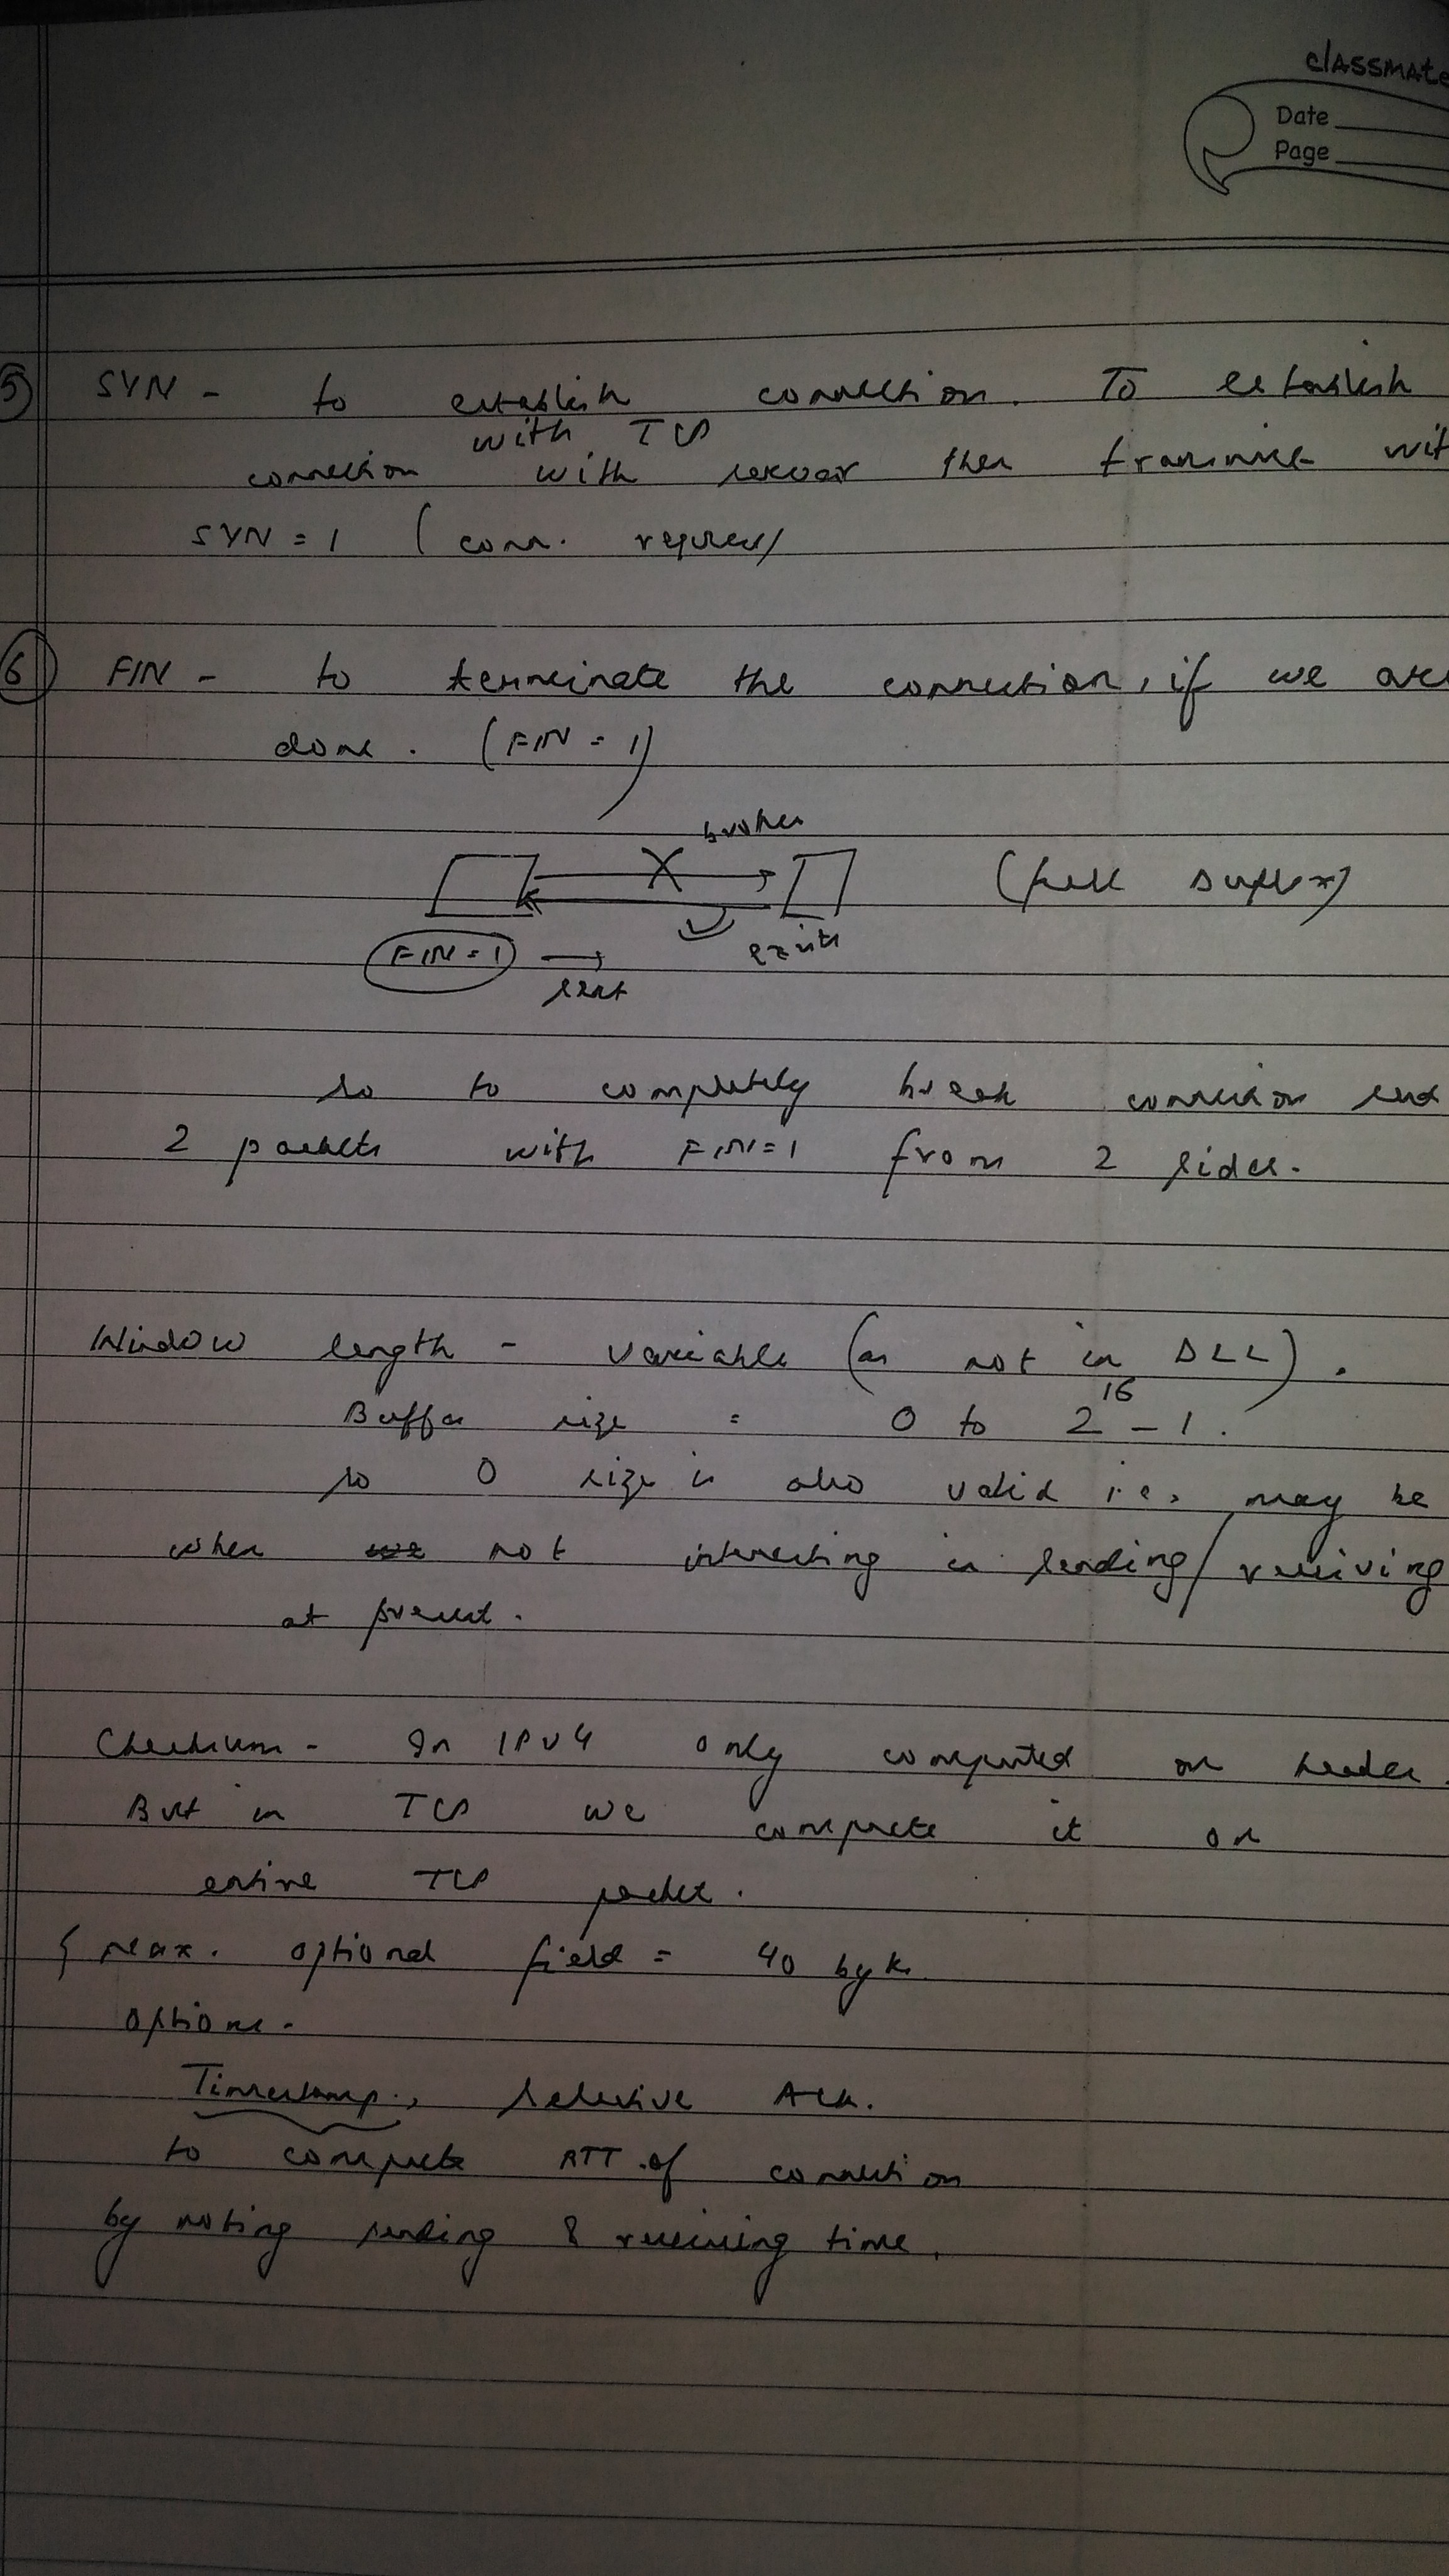 classmate
Date
Page
5 SYN - to establish connection. To establish
with TCP
connection with server then transmit wit
SYN = 1 (conn. request
6 FIN - to terminate the connection, if we are
done. (FIN = 1)
broken
(full duplex)
exists
FIN = 1
sent
so to completely break connection send
2 packets with FIN=1 from 2 sides.
Window length - variable (as not in DLL).
Buffer size = 0 to 2^16 - 1.
so 0 size is also valid i.e. may be
when not interesting in sending/receiving
at present.
Checksum - In IPv4 only computed on header.
But in TCP we compute it on
entire TCP packet.
{ Max. optional field = 40 byte
options -
Timestamp, selective Ack.
to compute RTT of connection
by noting sending & receiving time.